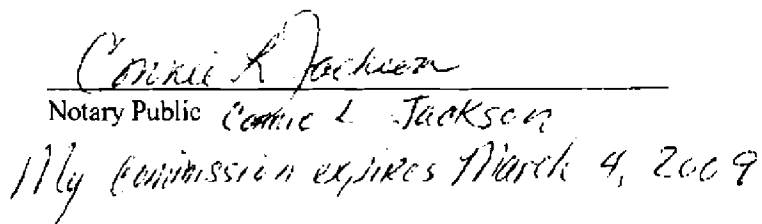 Connie L Jackson
Notary Public Connie L Jackson
My Commission expires March 4, 2009